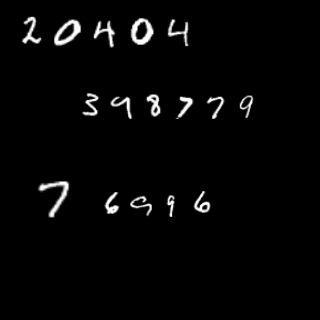 20404
398779
76996